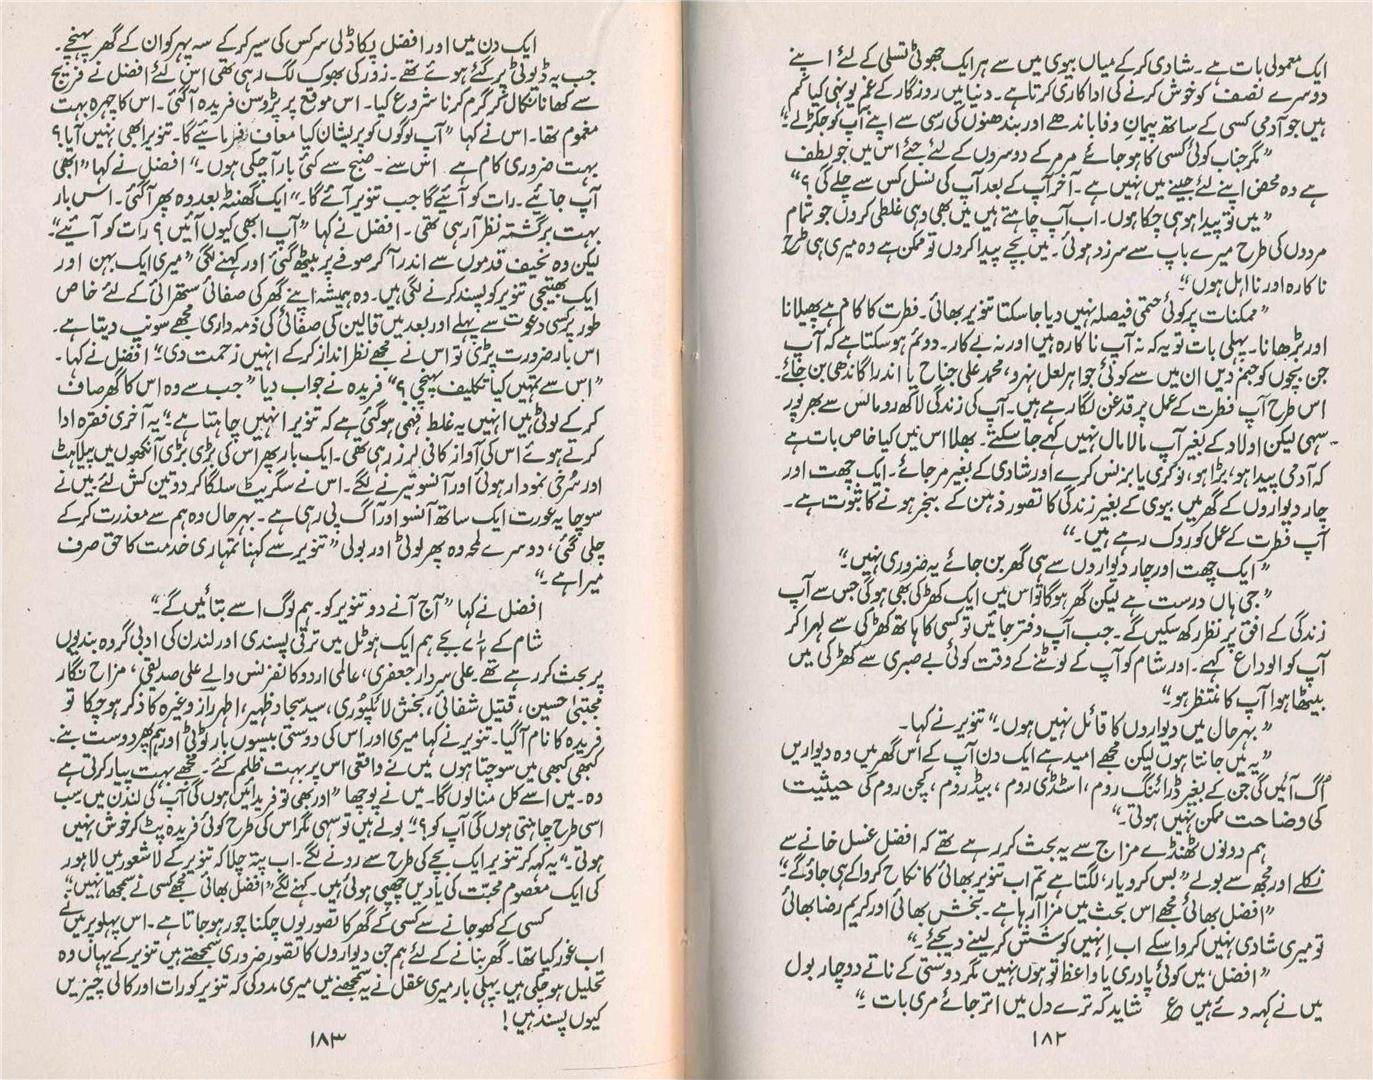 ایک معمولی بات ہے۔ شادی کرکے میاں بیوی میں سے ہر ایک جھوٹی تسلی کے لئے اپنے
دوسرے نصف کو خوش کرنے کی اداکاری کرتا ہے۔ دنیا میں روزگار کے غم یونہی کیا کم
ہیں جو آدمی کسی کے ساتھ پیمانِ وفا باندھے اور بندھنوں کی رسی سے اپنے آپ کو جکڑ لے۔“
”مگر جناب کوئی کسی کا ہو جائے مرمر کے دوسروں کے لئے جئے اس میں جو لطف
ہے وہ محض اپنے لئے جینے میں نہیں ہے۔ آخر آپ کے بعد آپ کی نسل کس سے چلے گی؟“
”میں تو پیدا ہو ہی چکا ہوں۔ اب آپ چاہتے ہیں میں بھی وہی غلطی کروں جو تمام
مردوں کی طرح میرے باپ سے سرزد ہوئی۔ میں بچے پیدا کروں تو ممکن ہے وہ میری ہی طرح
ناکارہ اور نااہل ہوں“۔
”ممکنات پر کوئی حتمی فیصلہ نہیں دیا جا سکتا تنویر بھائی۔ فطرت کا کام ہے پھیلانا
اور بڑھانا۔ پہلی بات تو یہ کہ نہ آپ ناکارہ ہیں اور نہ بے کار۔ دوئم ہو سکتا ہے کہ آپ
جن بچوں کو جنم دیں ان میں سے کوئی جواہر لعل نہرو، محمد علی جناح یا اندرا گاندھی بن جائے۔
اس طرح آپ فطرت کے عمل پر قدغن لگا رہے ہیں۔ آپ کی زندگی لاکھ رومانس سے بھرپور
سہی لیکن اولاد کے بغیر آپ مالامال نہیں کہے جا سکتے۔ بھلا اس میں کیا خاص بات ہے
کہ آدمی پیدا ہو، بڑا ہو، نوکری یا بزنس کرے اور شادی کے بغیر مر جائے۔ ایک چھت اور
چار دیواروں کے گھر میں بیوی کے بغیر زندگی کا تصور ذہن کے بنجر ہونے کا ثبوت ہے۔
آپ فطرت کے عمل کو روک رہے ہیں۔“
”ایک چھت اور چار دیواروں سے ہی گھر بن جائے یہ ضروری نہیں“۔
”جی ہاں درست ہے لیکن گھر ہوگا تو اس میں ایک کھڑکی بھی ہوگی جس سے آپ
زندگی کے افق پر نظر رکھ سکیں گے۔ جب آپ دفتر جائیں تو کسی کا ہاتھ کھڑکی سے لہرا کر
آپ کو الوداع کہے۔ اور شام کو آپ کے لوٹنے کے وقت کوئی بے صبری سے کھڑکی میں
بیٹھا ہوا آپ کا منتظر ہو“۔
”بہرحال میں دیواروں کا قائل نہیں ہوں۔“ تنویر نے کہا۔
”یہ میں جانتا ہوں لیکن مجھے امید ہے ایک دن آپ کے اس گھر میں وہ دیواریں
اُگ آئیں گی جن کے بغیر ڈرائنگ روم، اسٹڈی روم، بیڈ روم، کچن روم کی حیثیت
کی وضاحت ممکن نہیں ہوتی۔“
ہم دونوں ٹھنڈے مزاج سے یہ بحث کر رہے تھے کہ افضل غسل خانے سے
نکلے اور مجھ سے بولے ”بس کرو یار، لگتا ہے تم اب تنویر بھائی کا نکاح کروا کے ہی جاؤ گے“۔
”افضل بھائی مجھے اس بحث میں مزا آ رہا ہے۔ بخش بھائی اور کریم رضا بھائی
تو میری شادی نہیں کروا سکے اب انہیں کوشش کر لینے دیجئے۔“
”افضل میں کوئی پادری یا واعظ تو ہوں نہیں مگر دوستی کے ناتے دو چار بول
میں نے کہہ دئے ہیں ع شاید کہ ترے دل میں اتر جائے مری بات۔“
۱۸۲
ایک دن میں اور افضل پکاڈلی سرکس کی سیر کرکے سہ پہر کو ان کے گھر پہنچے۔
جب یہ ڈیوٹی پر گئے ہوئے تھے۔ زور کی بھوک لگ رہی تھی اس لئے افضل نے فریج
سے کھانا نکال کر گرم کرنا شروع کیا۔ اس موقع پر پڑوسن فریدہ آ گئی۔ اس کا چہرہ بہت
مغموم تھا۔ اس نے کہا ”آپ لوگوں کو پریشان کیا معاف فرمائیے گا۔ تنویر ابھی نہیں آیا؟
بہت ضروری کام ہے اس سے۔ صبح سے کئی بار آ چکی ہوں۔“ افضل نے کہا ”ابھی
آپ جائیے۔ رات کو آئیے گا جب تنویر آئے گا۔“ ایک گھنٹہ بعد وہ پھر آ گئی۔ اس بار
بہت برگشتہ نظر آ رہی تھی۔ افضل نے کہا ”آپ ابھی کیوں آئیں؟ رات کو آئیے“۔
لیکن وہ نحیف قدموں سے اندر آ کر صوفے پر بیٹھ گئی اور کہنے لگی ”میری ایک بہن اور
ایک بھتیجی تنویر کو پسند کرنے لگی ہیں۔ وہ ہمیشہ اپنے گھر کی صفائی ستھرائی کے لئے خاص
طور پر کسی دعوت سے پہلے اور بعد میں قالین کی صفائی کی ذمہ داری مجھے سونپ دیتا ہے۔
اس بار ضرورت پڑی تو اس نے مجھے نظر انداز کرکے انہیں زحمت دی“۔ افضل نے کہا۔
”اس سے تمہیں کیا تکلیف پہنچی؟“ فریدہ نے جواب دیا ”جب سے وہ اس کا گھر صاف
کرکے لوٹی ہیں انہیں یہ غلط فہمی ہو گئی ہے کہ تنویر انہیں چاہتا ہے“۔ یہ آخری فقرہ ادا
کرتے ہوئے اس کی آواز کافی لرز رہی تھی۔ ایک بار پھر اس کی بڑی بڑی آنکھوں میں پیلاہٹ
اور سُرخی نمودار ہوئی اور آنسو تیرنے لگے۔ اس نے سگریٹ سلگا کر دو تین کش لئے۔ میں نے
سوچا یہ عورت ایک ساتھ آنسو اور آگ پی رہی ہے۔ بہرحال وہ ہم سے معذرت کرکے
چلی گئی، دوسرے لمحہ وہ پھر لوٹی اور بولی ”تنویر سے کہنا تمہاری خدمت کا حق صرف
میرا ہے۔“
افضل نے کہا ”آج آنے دو تنویر کو۔ ہم لوگ اسے بتائیں گے۔“
شام کے بجے ہم ایک ہوٹل میں ترقی پسندی اور لندن کی ادبی گروہ بندیوں
پر بحث کر رہے تھے۔ علی سردار جعفری، عالمی اردو کانفرنس والے علی صدیقی، مزاح نگار
مجتبیٰ حسین، قتیل شفائی، بخش لائلپوری، سید سجاد ظہیر، اطہر راز وغیرہ کا ذکر ہو چکا تو
فریدہ کا نام آ گیا۔ تنویر نے کہا میری اور اس کی دوستی بیسوں بار ٹوٹی اور ہم پھر دوست بنے۔
کبھی کبھی میں سوچتا ہوں میں نے واقعی اس پر بہت ظلم کئے۔ مجھے بہت پیار کرتی ہے
وہ۔ میں اسے کل منا لوں گا۔ میں نے پوچھا ”اور بھی تو فریدائیں ہوں گی آپ کی لندن میں سب
اسی طرح چاہتی ہوں گی آپ کو؟“ بولے ہیں تو سہی مگر اس کی طرح کوئی فریدہ پٹ کر خوش نہیں
ہوتی۔“ یہ کہہ کر تنویر ایک بچے کی طرح سے رونے لگے۔ اب پتہ چلا کہ تنویر کے لاشعور میں لاہور
کی ایک معصوم محبت کی یادیں چھپی ہوئی ہیں۔ کہنے لگے ”افضل بھائی مجھے کسی نے سمجھا نہیں“۔
کسی کے کھو جانے سے کسی کے گھر کا تصور یوں چکنا چور ہو جاتا ہے۔ اس پہلو پر میں نے
اب غور کیا تھا۔ گھر بنانے کے لئے ہم جن دیواروں کا تصور ضروری سمجھتے ہیں تنویر کے یہاں وہ
تحلیل ہو چکی ہیں پہلی بار میری عقل نے یہ سمجھنے میں میری مدد کی کہ تنویر کو رات اور کالی چیزیں
کیوں پسند ہیں!
۱۸۳